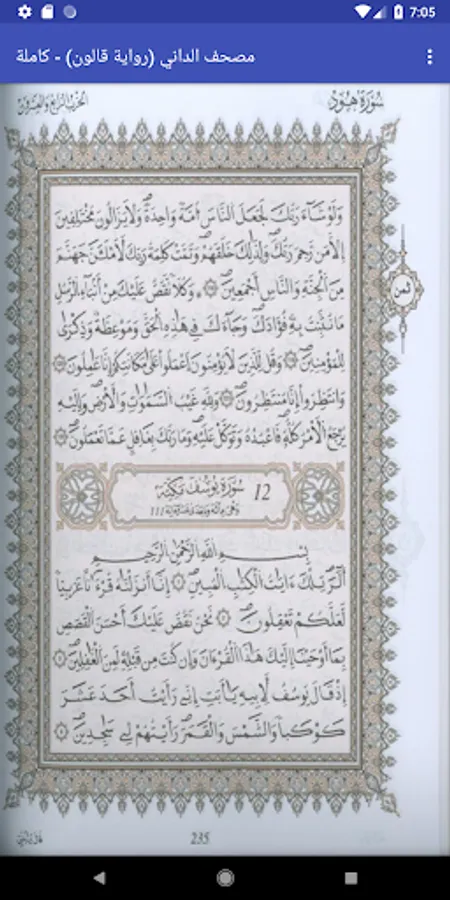 7:05
مصحف الداني (رواية قالون) - كاملة
سُورَةُ هُود
الحزب الرابع والعشرون
وَلَوْ شَآءَ رَبُّكَ لَجَعَلَ النَّاسَ أُمَّةً وَاحِدَةً وَلَا يَزَالُونَ مُخْتَلِفِينَ
إِلَّا مَن رَّحِمَ رَبُّكَ وَلِذَٰلِكَ خَلَقَهُمْ وَتَمَّتْ كَلِمَةُ رَبِّكَ لَأَمْلَأَنَّ جَهَنَّمَ
مِنَ الْجِنَّةِ وَالنَّاسِ أَجْمَعِينَ وَكُلًّا نَّقُصُّ عَلَيْكَ مِنْ أَنبَآءِ الرُّسُلِ
ثمن
مَا نُثَبِّتُ بِهِ فُؤَادَكَ وَجَآءَكَ فِي هَٰذِهِ الْحَقُّ وَمَوْعِظَةٌ وَذِكْرَىٰ
لِلْمُؤْمِنِينَ وَقُل لِّلَّذِينَ لَا يُؤْمِنُونَ اعْمَلُوا عَلَىٰ مَكَانَتِكُمْ إِنَّا عَٰمِلُونَ
وَانتَظِرُوا إِنَّا مُنتَظِرُونَ وَلِلَّهِ غَيْبُ السَّمَٰوَٰتِ وَالْأَرْضِ وَإِلَيْهِ
يَرْجِعُ الْأَمْرُ كُلُّهُ فَاعْبُدْهُ وَتَوَكَّلْ عَلَيْهِ وَمَا رَبُّكَ بِغَٰفِلٍ عَمَّا تَعْمَلُونَ
12 سُورَةُ يُوسُفَ مَكِّيَّة
111
بِسْمِ اللَّهِ الرَّحْمَٰنِ الرَّحِيمِ
الٓرٓ تِلْكَ ءَايَٰتُ الْكِتَٰبِ الْمُبِينِ إِنَّا أَنزَلْنَٰهُ قُرْءَٰناً عَرَبِيّاً
لَّعَلَّكُمْ تَعْقِلُونَ نَحْنُ نَقُصُّ عَلَيْكَ أَحْسَنَ الْقَصَصِ
بِمَا أَوْحَيْنَا إِلَيْكَ هَٰذَا الْقُرْءَانَ وَإِن كُنتَ مِن قَبْلِهِ لَمِنَ الْغَٰفِلِينَ
إِذْ قَالَ يُوسُفُ لِأَبِيهِ يَٰأَبَتِ إِنِّي رَأَيْتُ أَحَدَ عَشَرَ
كَوْكَباً وَالشَّمْسَ وَالْقَمَرَ رَأَيْتُهُمْ لِي سَٰجِدِينَ
235